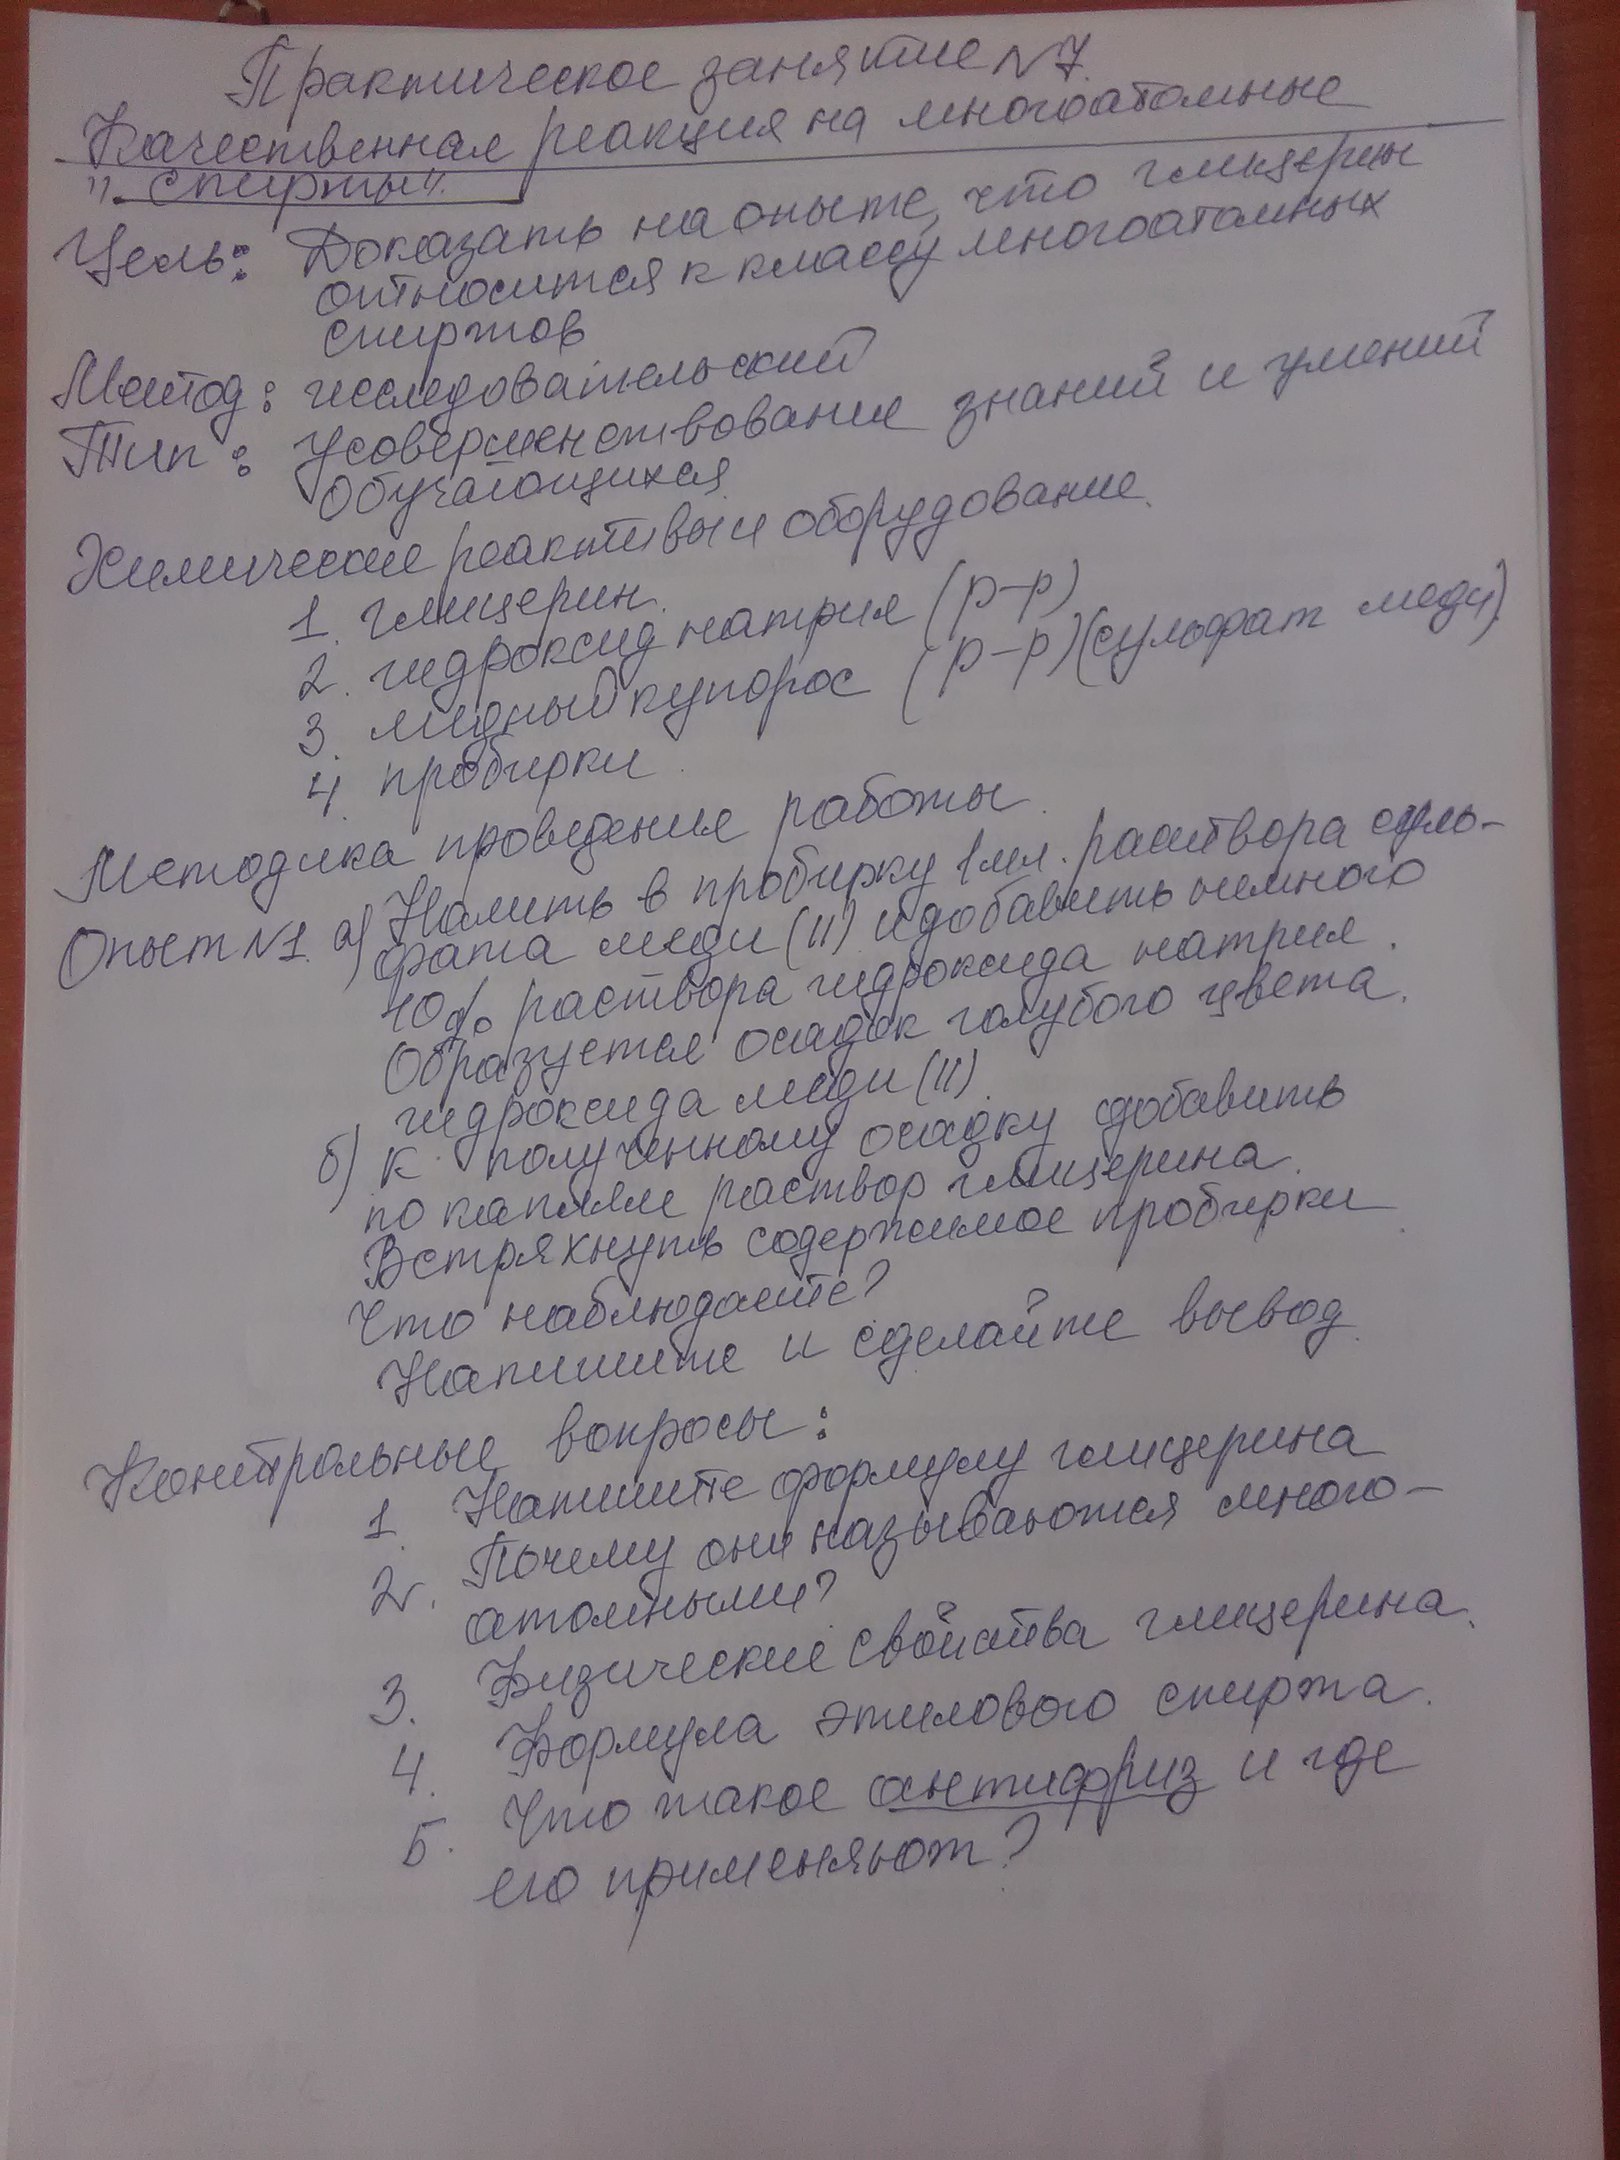 Практическое занятие N7.
Качественная реакция на многоатомные
"спирты".
Цель: Доказать на опыте, что глицерины
относится к классу многоатомных
спиртов
Метод: исследовательский
Тип: Усовершенствование знаний и умений
обучающихся
Химические реактивы и оборудование.
1. глицерин.
2. гидроксид натрия (р-р)
3. медный купорос (р-р)(сульфат меди)
4. пробирки.
Методика проведения работы.
Опыт N1. а) Налить в пробирку 1 мл. раствора суль-
фата меди (II) и добавить немного
10% раствора гидроксида натрия.
Образуется осадок голубого цвета.
гидроксида меди (II).
б) к полученному осадку добавить
по каплям раствор глицерина.
Встряхнуть содержимое пробирки.
Что наблюдаете?
Напишите и сделайте вывод.
Контрольные вопросы:
1. Напишите формулу глицерина
2. Почему они называются много-
атомными?
3. Физические свойства глицерина.
4. Формула этилового спирта.
5. Что такое антифриз и где
его применяют?